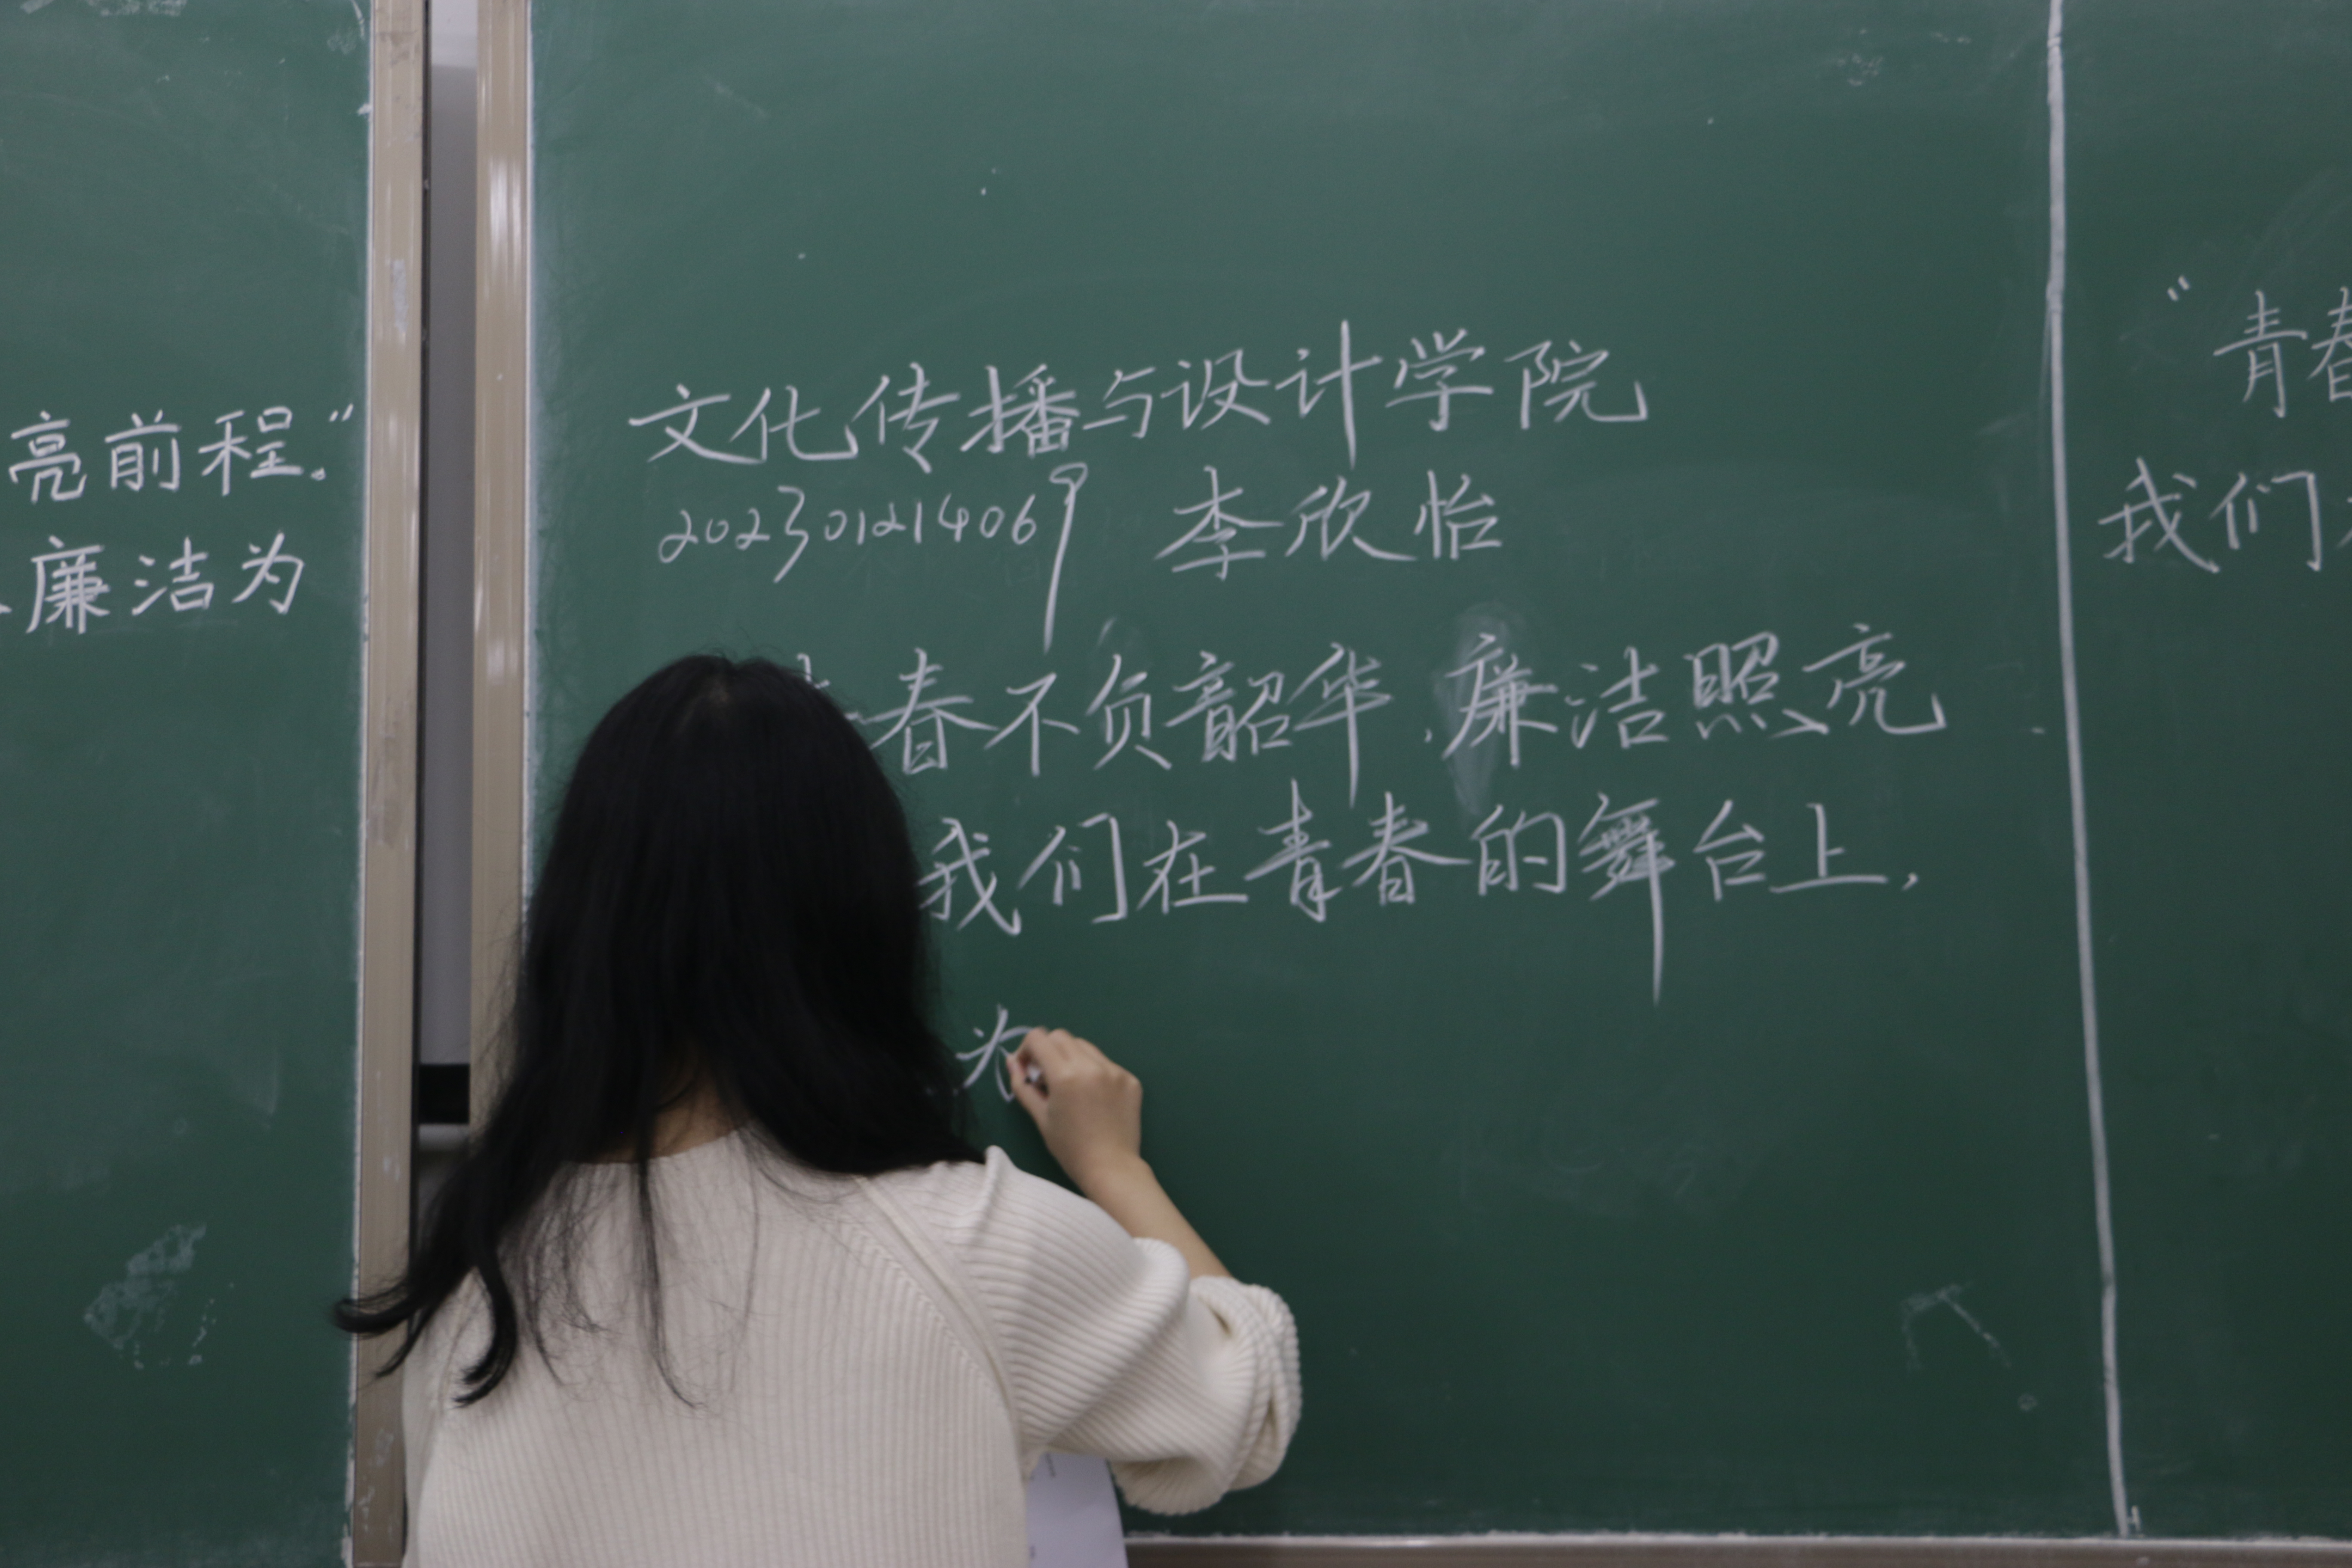 亮前程。”
廉洁为
文化传播与设计学院
202301214069 李欣怡
春不负韶华,廉洁照亮
我们在青春的舞台上,
为
“青春
我们